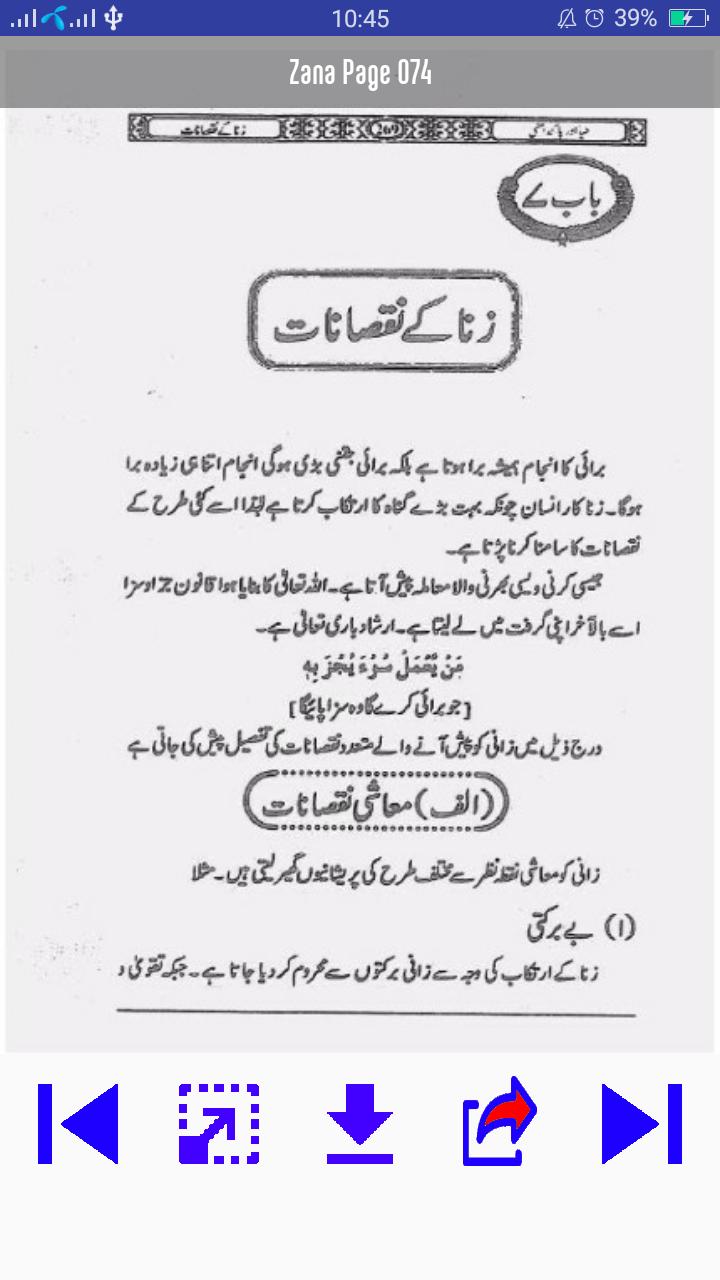 10:45
39%
Zana Page 074
حیا اور پاکدامنی
269
زنا کے نقصانات
باب ۷
زنا کے نقصانات
برائی کا انجام ہمیشہ برا ہوتا ہے بلکہ برائی جتنی بڑی ہوگی انجام اتنا ہی زیادہ برا
ہوگا۔ زنا کار انسان چونکہ بہت بڑے گناہ کا ارتکاب کرتا ہے لہٰذا اسے کئی طرح کے
نقصانات کا سامنا کرنا پڑتا ہے۔
جیسی کرنی ویسی بھرنی والا معاملہ پیش آتا ہے۔ اللہ تعالیٰ کا بنایا ہوا قانون جزاوسزا
اسے بالآخر اپنی گرفت میں لے لیتا ہے۔ ارشاد باری تعالیٰ ہے۔
مَنْ يَّعْمَلْ سُوْءَ يُجْزَ بِهٖ
[جو برائی کرے گا وہ سزا پائیگا]
درج ذیل میں زانی کو پیش آنے والے متعدد نقصانات کی تفصیل پیش کی جاتی ہے
(الف) معاشی نقصانات
زانی کو معاشی نقطہ نظر سے مختلف طرح کی پریشانیوں گھیر لیتی ہیں۔ مثلا
(۱) بے برکتی
زنا کے ارتکاب کی وجہ سے زانی برکتوں سے محروم کر دیا جاتا ہے۔ جبکہ تقویٰ و